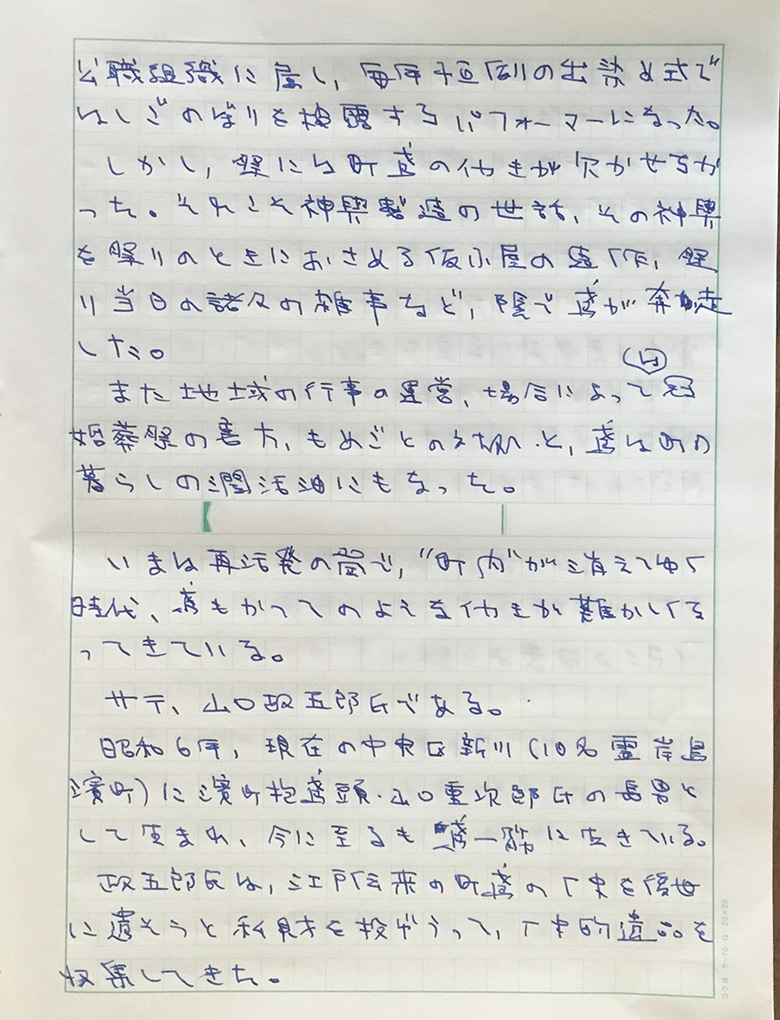 公職組織に属し、毎年恒例の出染め式で
はしごのぼりを披露するパフォーマーになった。
しかし、祭には町鳶の仂きが欠かせなか
った。それこそ神輿製造の世話、その神輿
を祭りのときにおさめる仮小屋の造作、祭
り当日の諸々の雑事など、陰で鳶が奔走
した。
また地域の行事の運営、場合によって(は)冠
婚葬祭の裏方、もめごとの と、鳶は町の
暮らしの潤活油にもなった。
いまは再活発の嵐で、"町内"が消えてゆく
時代、鳶もかつてのような仂きが難かしくな
ってきている。
サテ、山口政五郎氏である。
昭和6年、現在の中央区新川(旧名霊岸島
濱町)に濱町抱鳶頭・山口重次郎氏の長男と
して生まれ、今に至るも鳶一筋に生きている。
政五郎氏は、江戸伝来の町鳶の 史を後世
に遺そうと私財を投げうって、 史的遺品を
収集してきた。
コクヨ ケ-10 20×20